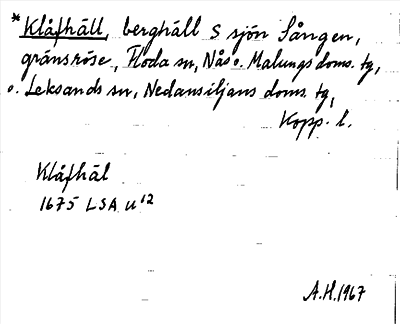 * Klåfhäll, berghäll S sjön Sången,
gränsröse, Floda sn, Nås o. Malungs doms. tg,
o. Leksands sn, Nedansiljans doms. tg,
Kopp. l.
Klåfhäl
1675 LSA u¹²
A.H. 1967